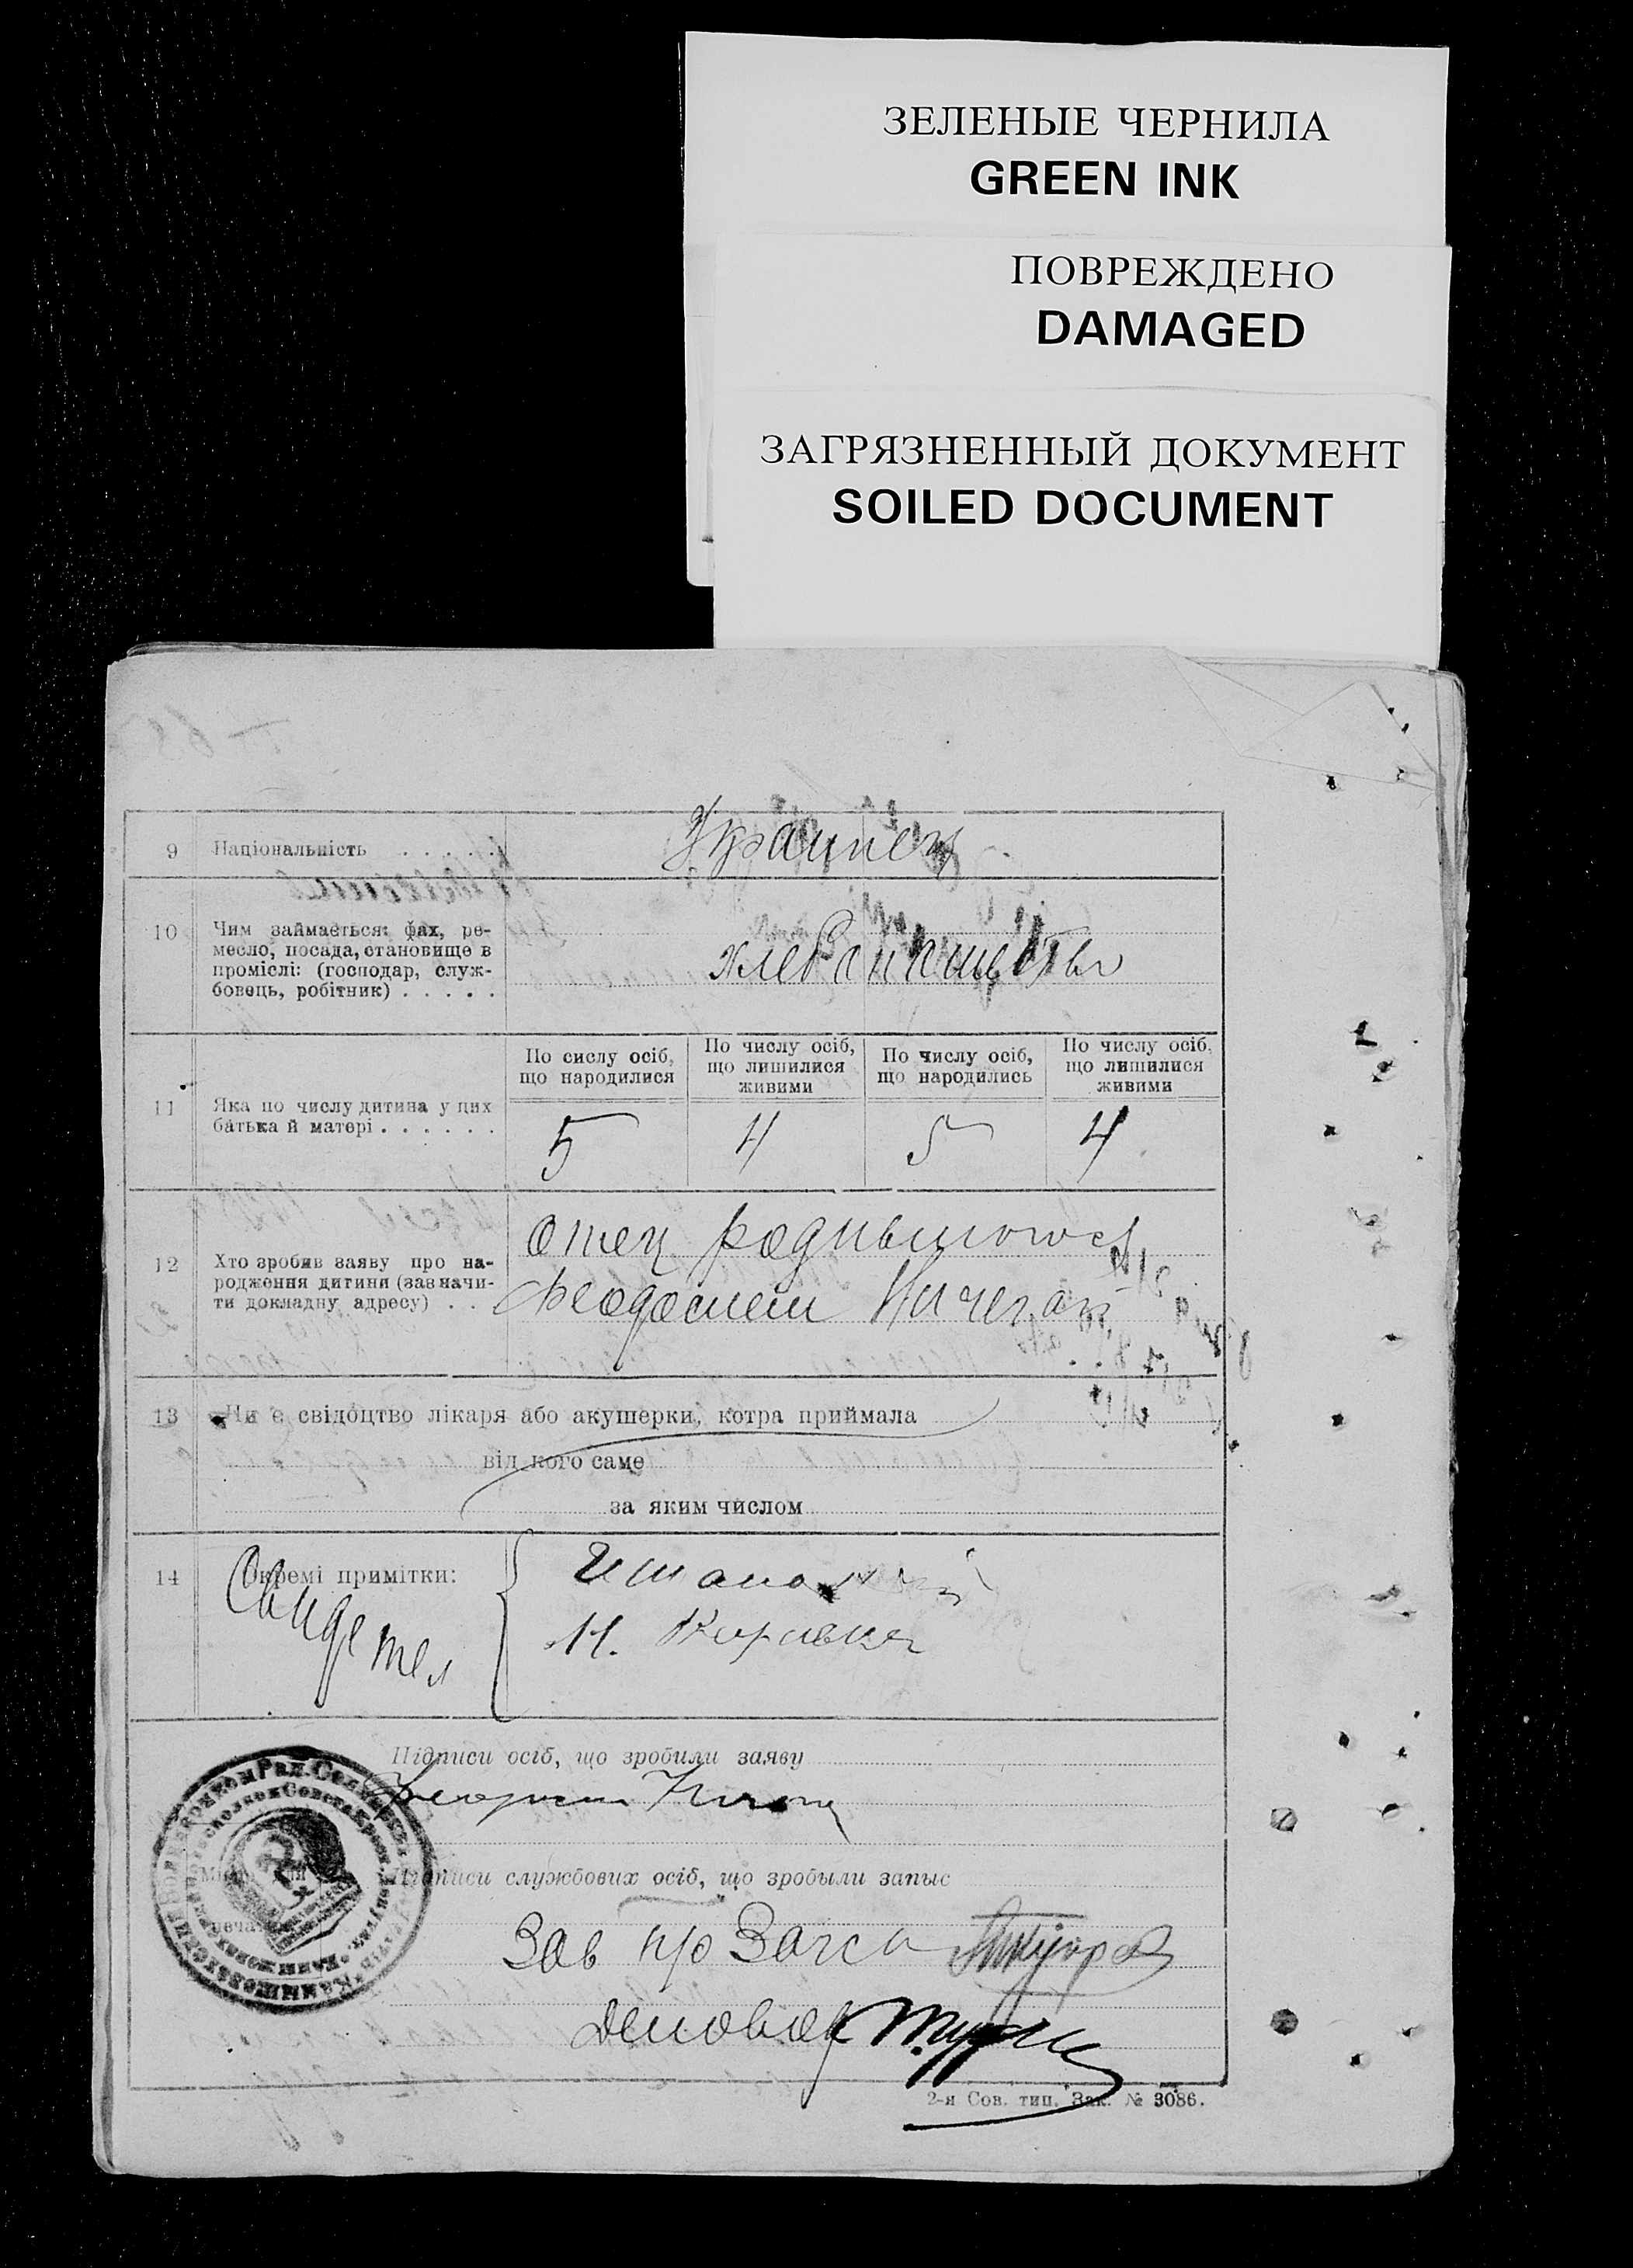 ЗЕЛЕНЫЕ ЧЕРНИЛА
GREEN INK
ПОВРЕЖДЕНО
DAMAGED
ЗАГРЯЗНЕННЫЙ ДОКУМЕНТ
SOILED DOCUMENT
9 Національність . . . . .
Украинец
10 Чим займається: фах, ре-
месло, посада, становище в
проміслі: (господар, служ-
бовець, робітник) . . . . .
хлебопашество
11 Яка по числу дитина у цих
батька й матері . . . . . .
По сислу осіб,
що народилися
По числу осіб,
що лишилися
живими
По числу осіб,
що народились
По числу осіб,
що лишилися
живими
5 4 5 4
12 Хто зробив заяву про на-
родження дитини (зазначи-
ти докладну адресу) . .
Отец родившогося
Феодосий
13 Чи є свідоцтво лікаря або акушерки, котра приймала
від кого саме
за яким числом
14 Окремі примітки:
Свидетел
Н.
Підписи осіб, що зробили заяву
Підписи службових осіб, що зробыли запыс
Зав п/о Загса
Деловод
2-я Сов. тип. Зак. № 3086.